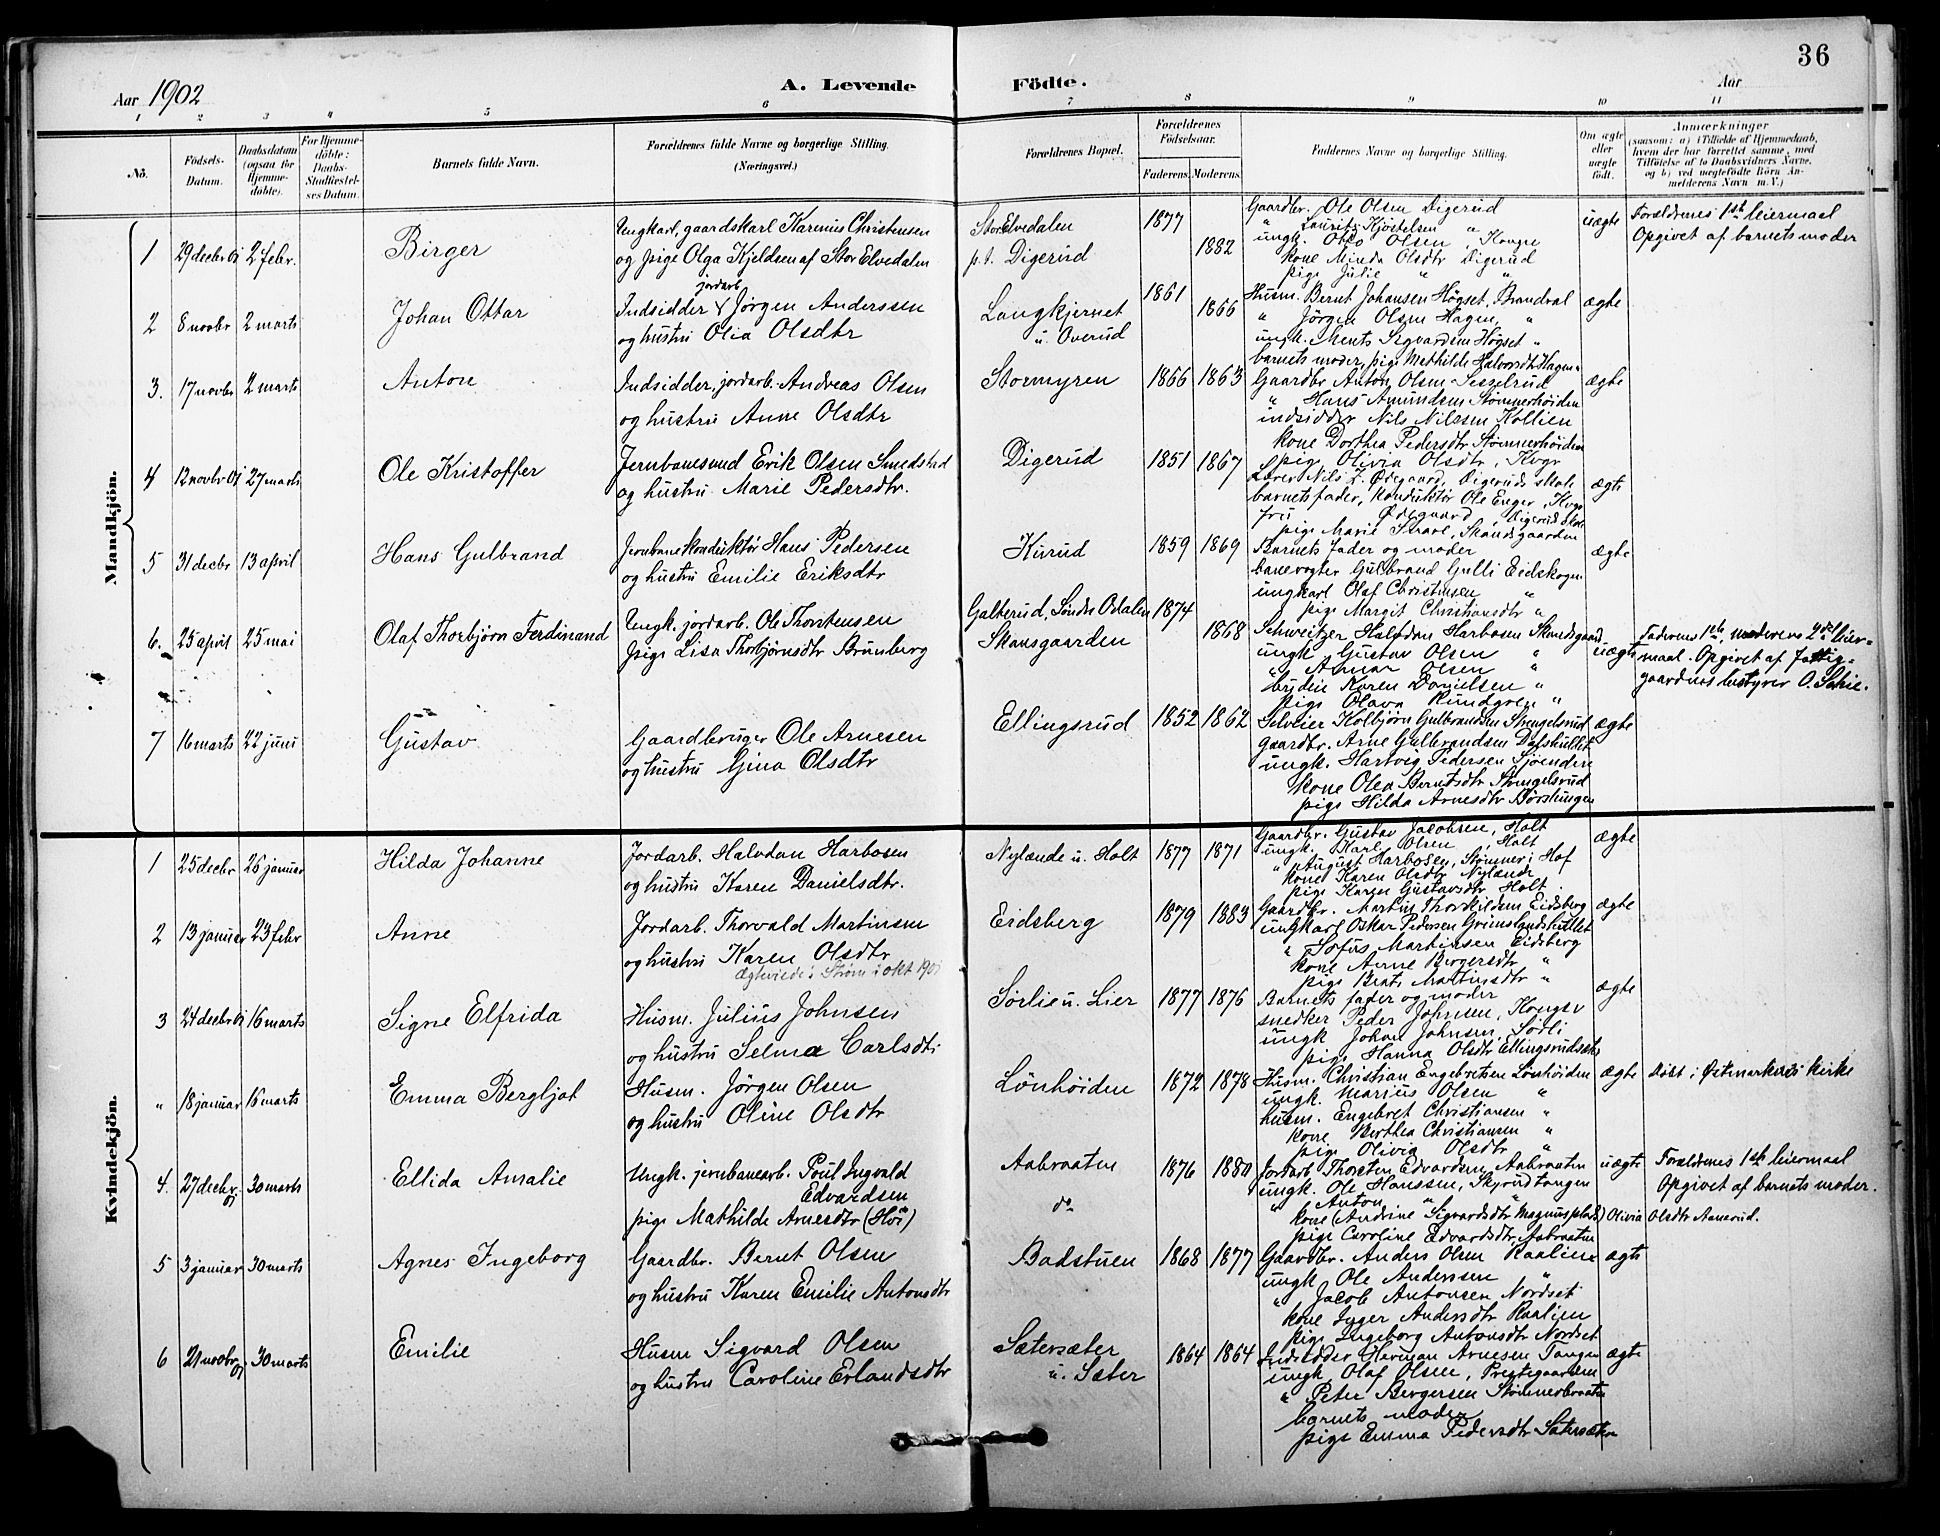 36
Aar 1902
A. Levende Födte.
Aar
1 2 3 4 5 6 7 8 9 10 11
No.
Födsels-Datum.
Daabsdatum (ogsaa for Hjemme-döbte).
For Hjemme-döbte: Daabs-Stadfæstel-ses Datum.
Barnets fulde Navn.
Forældrenes fulde Navne og borgerlige Stilling.
(Næringsvei.)
Forældrenes Bopæl.
Forældrenes Födselsaar.
Faderens. Moderens.
Faddernes Navne og borgerlige Stilling.
Om ægte eller uægte födt.
Anmærkninger
(saasom: a) i Tilfælde af Hjemmedaab,
hvem der har forrettet samme, med
Tilföielse af to Daabsvidners Navne,
og b) ved uegtefödte Börn An-
melderens Navn m. V.)
Mandkjön.
1 29 decbr 01 2 febr. Birger
Ungkarl, gaardskarl Karinius Christensen
og pige Olga Kjeldsen af Stor Elvedalen
Stor Elvedalen
p.t. Digerud
1877 1882
Gaardbr. Ole Olsen Digerud
" Laurits Kjostelsen "
ungk. Otto Olsen, Kongse
kone Minda Olsdtr Digerud
pige Julie " "
uægte
Forældrenes 1ste leiermaal
Opgivet af barnets moder
2 8 novbr 2 marts Johan Ottar
jordarb.
Indsidder Jörgen Anderssen
og hustru Olia Olsdtr
Langkjernet
u. Overud
1861 1866
Husm. Bernt Johansen Högset, Brandval
" Jörgen Olsen Hagen, "
ungk. Ments Sigvardsen Högset "
barnets moder, pige Mathilde Halvorsdt Hagen "
ægte
3. 17 novbr 2 marts Anton
Indsidder, jordarb. Andreas Olsen
og hustru Anne Olsdtr
Stormyren
1866 1863
Gaardbr Anton Olsen Sesselrud
" Hans Amundsen Stömnerhöiden
indsidder Nils Nilssen Kollien
kone Dorthea Pedersdtr Stömnerhöiden
pige Olivia Olsdtr, Kvgr
ægte
4 12 novbr 01 27 marts Ole Kristoffer
Jernbanesmed Erik Olsen Smedstad
og hustru Marie Pedersdtr.
Digerud
1851 1867
Lærer Nils L. Ödegaard, Digeruds skole
barnets fader, konduktör Ole Enger, Kvgr
fru Ödegaard, Digerud skole
pige Marie Skaare, Skandsgaarden
ægte
5 31 decbr 13 april Hans Gulbrand
Jernbanekonduktör Hans Pedersen
og hustru Emilie Eriksdtr
Kurud
1859 1869
Barnets fader og moder
banevogter Gulbrand Gulli Eidskogen
ungkarl Olaf Christensen "
pige Margit Christiansdtr "
ægte
6. 25 april 25 mai Olaf Thorbjørn Ferdinand
Ungk. jordarb. Ole Thorstensen
pige Lisa Thorbjørnsdtr Brunberg
Galterud, Söndre Odalen
Skansgaarden
1874 1868
Schweitzer Halfdan Harbosen Skandsgaard
ungk Gustav Olsen "
" Arnar Olsen "
budeie Karen Danielsen "
pige Olava Rundgren "
uægte
Faderens 1ste, moderens 2det leier-
maal. Opgivet af Fattig-
gaardens bestyrer O. Sæhie.
7 16 marts 22 juni Gustav
Gaardbruger Ole Arnesen
og hustru Gina Olsdtr
Ellingsrud
1852 1862
Selveier Kolbjörn Gulbrandsen Stengelsrud
gaardbr. Arne Gulbrandsen Dafshullet
ungk. Hartvig Pedersen Sjöenden
kone Olea Berntsdtr Stengelsrud
pige Hilda Arnesdtr Börstingen
ægte
Kvindekjön.
1 25 decbr 26 januar Hilda Johanne
Jordarb. Halvdan Harbosen
og hustru Karen Danielsdtr.
Nylænde u. Holt
1877 1871
Gaardbr. Gustav Jacobsen, Holt
ungk. Karl Olsen, Holt
" August Harbosen, Stömner i Hof
kone Karen Olsdtr Nylænde
pige Karen Gustavsdtr Holt.
ægte
2 13 januar 23 febr Anne
Jordarb. Thorvald Martinsen
og hustru Karen Olsdtr
Ægteviede i Ström i okt 1901
Eidsberg
1879 1883
Gaardbr. Martin Thorkildsen Eidsberg
ungkarl Oskar Pedersen Grimslandshullet
" Sofus Martinsen Eidsberg
kone Anne Börgersdtr "
pige Beate Martinsdtr "
ægte
3 24 decbr 01 16 marts Signe Elfrida
Husm. Julius Johnsen
og hustru Selma Carlsdtr
Sörlie u. Lier
1877 1876
Barnets fader og moder
snedker Peder Johnsen, Kongsv
ungk Johan Johnsen, Sörli
pige Hanna Olsdtr Ellingsrudsæter
ægte
" 18 januar 16 marts Emma Bergljot
Husm. Jörgen Olsen
og hustru Oline Olsdtr
Lönhöiden
1872 1878
Husm. Christian Engebretsen Lönhöiden
ungk. Marius Olsen "
husm. Engebret Christiansen "
kone Berthea Christiansen "
pige Olivia Olsdtr "
ægte
Döbt i Östmarkens kirke
4. 27 decbr. 01 30 marts Ellida Amalie
Ungk. jernbanearb. Poul Ingvald
Edvardsen
pige Mathilde Arnesdtr (Höi)
Aabraaten
do
1876 1880
Jordarb Thorsten Edvardsen Aabraaten
ungk. Ole Hanssen, Skjöustangen
" Anton " "
kone (Andrine Sigvardsdtr Magnusplads) Olivia Olsdtr Aamerud.
pige Caroline Edvardsdtr, Aabraaten
uægte
Forældrenes 1ste leiermaal
Opgivet af barnets moder.
5 3 januar 30 marts Agnes Ingeborg
Gaardbr. Bernt Olsen
og hustru Karen Emilie Antonsdtr
Badstuen
1868 1877
Gaardbr. Anders Olsen Raalien
ungk Ole Andersen "
" Jacob Antonsen Nordset
kone Inger Andersdtr Raalien
pige Ingeborg Antonsdtr Nordset
ægte
6 21 novbr 01 30 marts Emilie
Husm Sigvard Olsen
og hustru Caroline Erlandsdtr
Sætersæter
u. Sæter
1864 1864
Indsidder Herman Arnesen Tangen
ungk Olaf Olsen, Prestegaarden
" Peter Bergersen Stömnerbraaten
barnets moder
pige Emma Pedersdtr Sætersæter
ægte